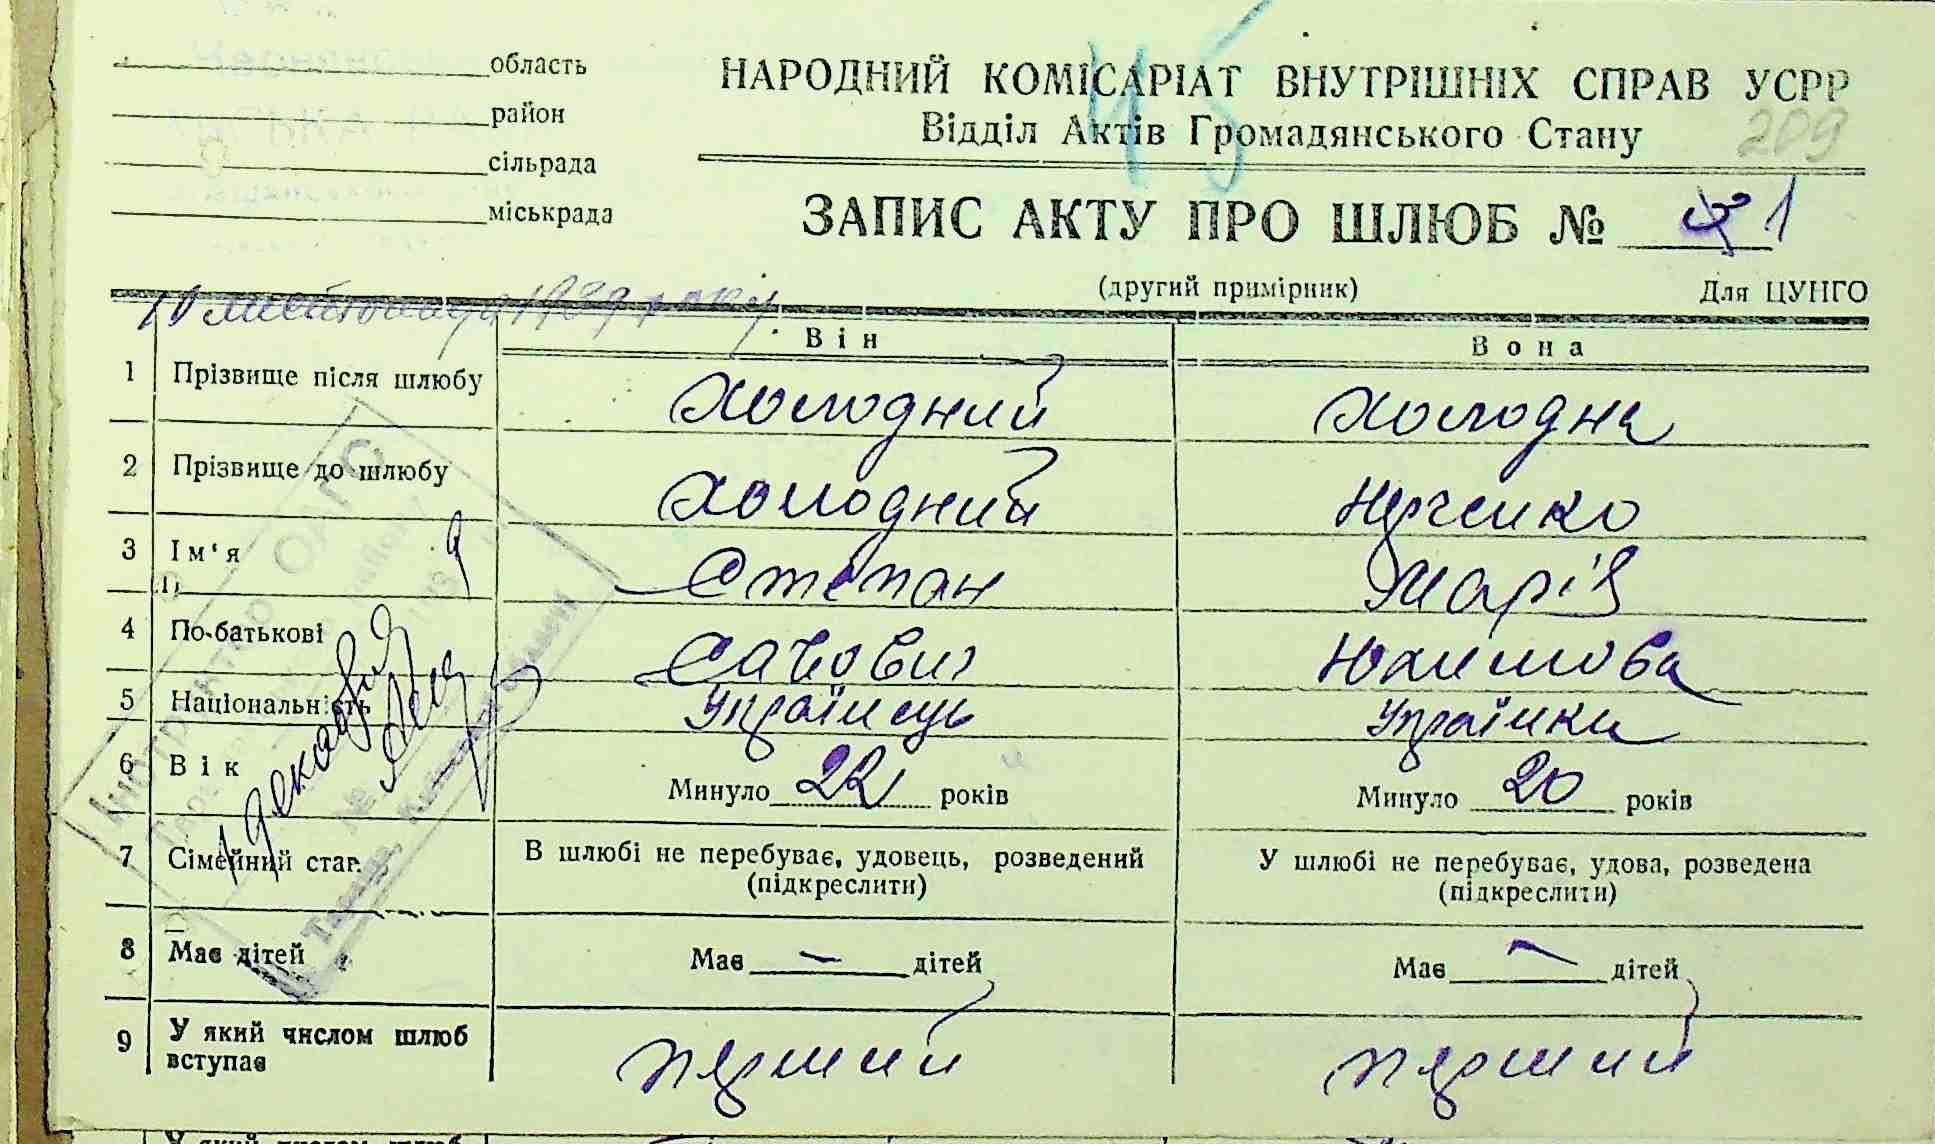 область
район
сільрада
міськрада
НАРОДНИЙ КОМІСАРІАТ ВНУТРІШНІХ СПРАВ УСРР
Відділ Актів Громадянського Стану
45
209
ЗАПИС АКТУ ПРО ШЛЮБ № 1
(другий примірник) Для ЦУНГО
10 листопада 1939 року
Він Вона
1 Прізвище після шлюбу Холодний Холодна
2 Прізвище до шлюбу Холодний
3 Ім'я Степан Марія
4 По-батькові Савович Юхимовна
5 Національність Українець Українка
6 Вік Минуло 22 років Минуло 20 років
7 Сімейний стан В шлюбі не перебуває, удовець, розведений У шлюбі не перебуває, удова, розведена
(підкреслити) (підкреслити)
8 Має дітей Має — дітей Має — дітей
9 У який числом шлюб вступає перший перший
ОАГС